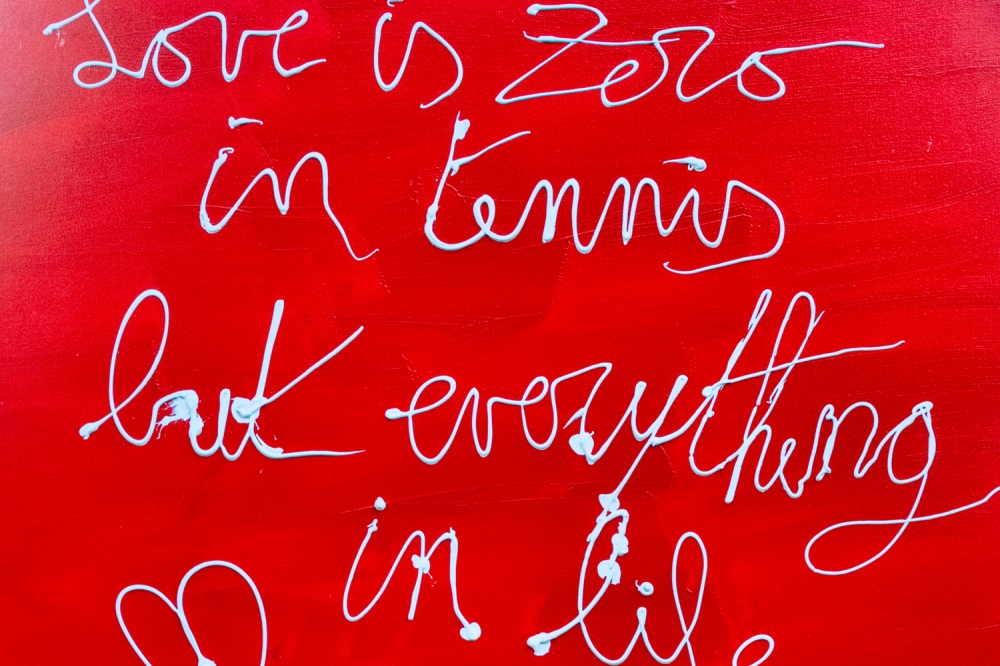 Love is Zero
in tennis
but everything
in life